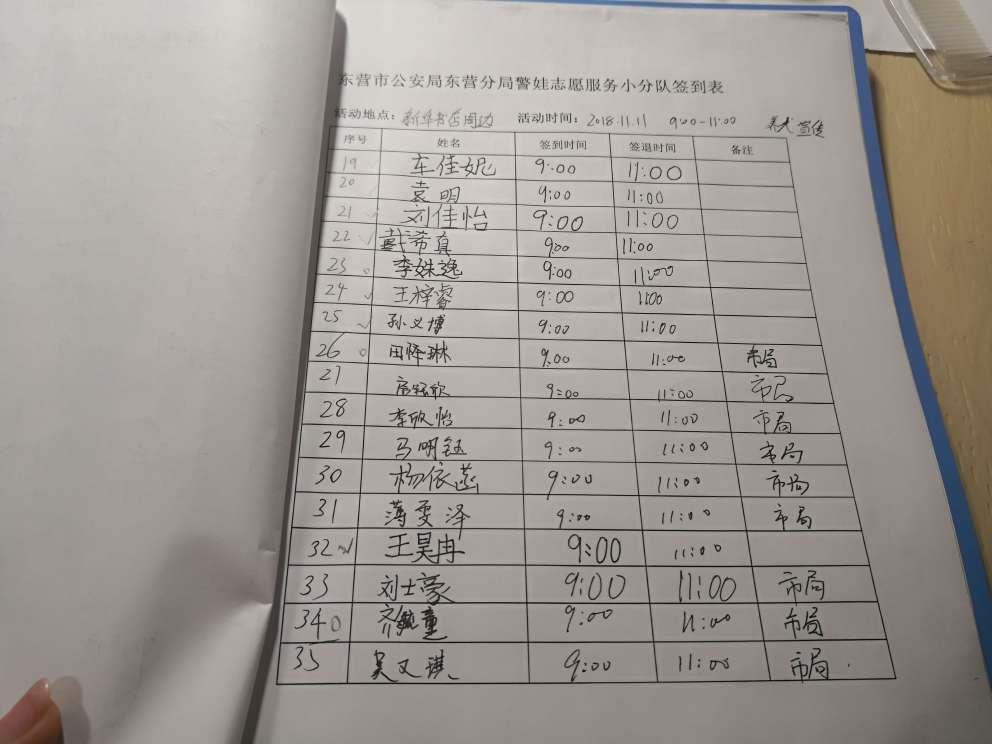 东营市公安局东营分局警娃志愿服务小分队签到表
活动地点：新华书店周边 活动时间：2018.11.11 9:00-11:00 宣传
序号 姓名 签到时间 签退时间 备注
19 车佳妮 9:00 11:00
20 袁明 9:00 11:00
21 刘佳怡 9:00 11:00
22 戴希真 9:00 11:00
23 李姝逸 9:00 11:00
24 王梓睿 9:00 11:00
25 孙义博 9:00 11:00
26 田怿琳 9:00 11:00 市局
27 9:00 11:00 市局
28 李欣怡 9:00 11:00 市局
29 马明钰 9:00 11:00 市局
30 杨依菡 9:00 11:00 市局
31 薄雯泽 9:00 11:00 市局
32 王昊冉 9:00 11:00
33 刘士豪 9:00 11:00 市局
34 齐毓童 9:00 11:00 市局
35 吴文淇 9:00 11:00 市局